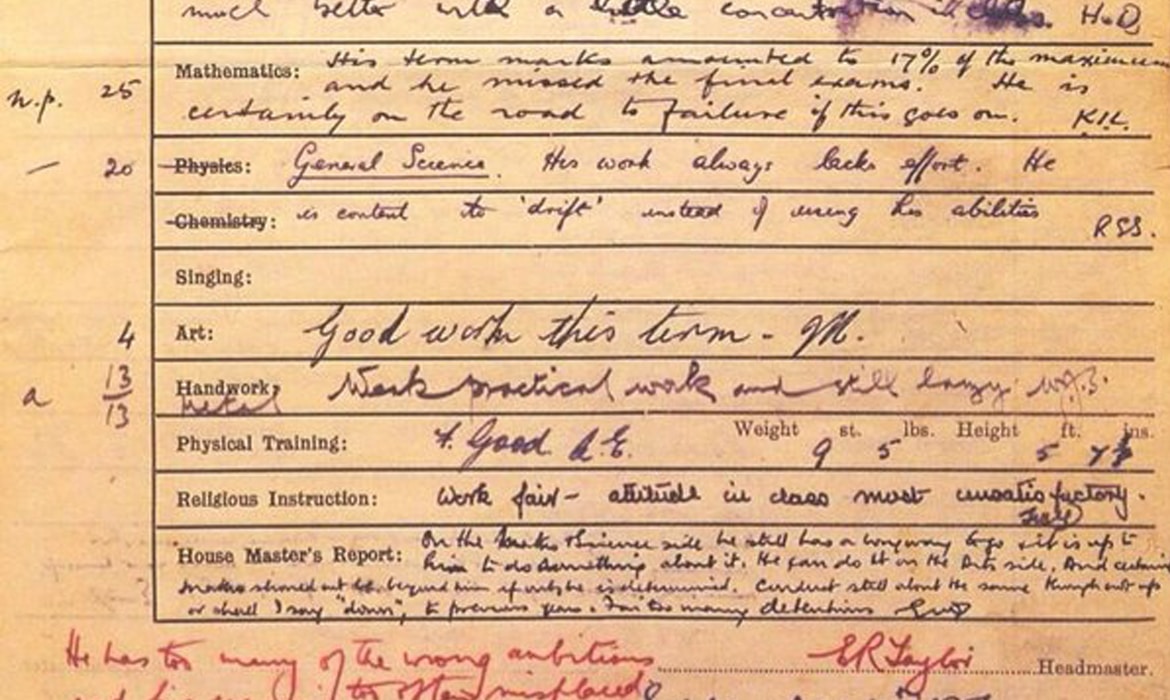 much better with a little concentration in class. H.D.
Mathematics: His term marks amounted to 17% of the maximum
n.p. 25 and he missed the final exams. He is
certainly on the road to failure if this goes on.
— 20 Physics: General Science. His work always lacks effort. He
Chemistry: is content to 'drift' instead of using his abilities
RSS.
Singing:
4 Art: Good work this term -
a 13/13 Handwork: Weak practical work and still lazy.
Metal
Physical Training: F. Good A.E. Weight 9 st. 5 lbs. Height 5 ft. 7½ ins.
Religious Instruction: Work fair - attitude in class most unsatisfactory.
House Master's Report: On the Maths & Science side he still has a long way to go & it is up to
him to do something about it. He can do it on the Arts side. And certainly
Maths should not be beyond him if only he is determined. Conduct still about the same though not up
or shall I say "down", to previous years. Far too many detentions
He has too many of the wrong ambitions E R Taylor Headmaster.
and his too often misplaced